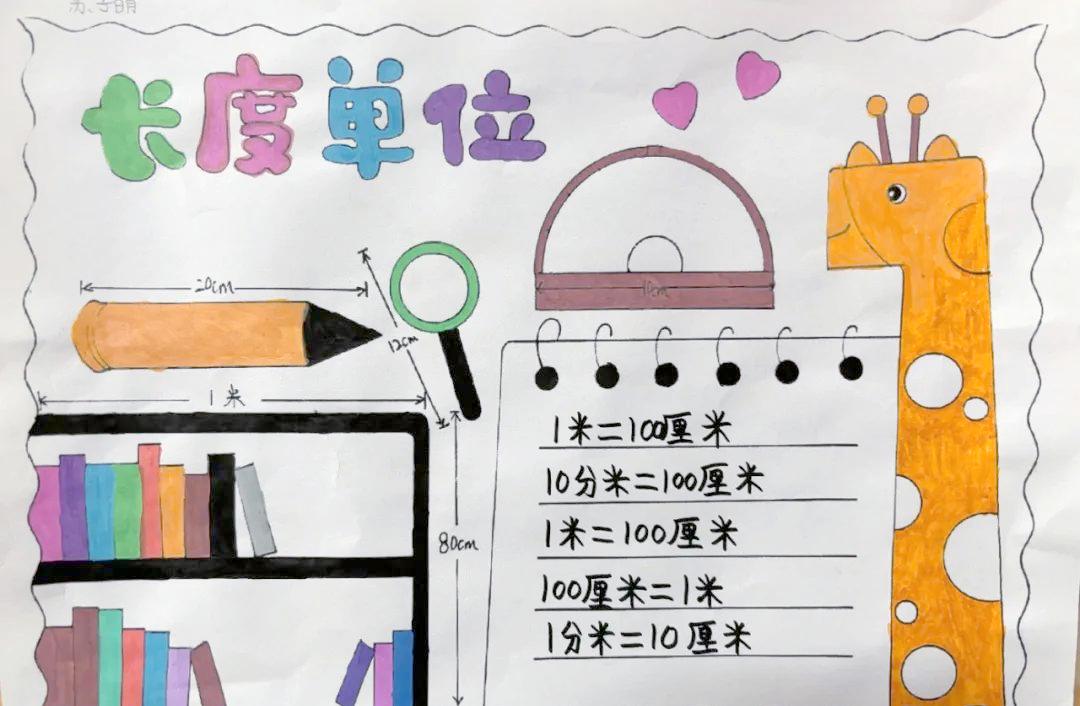 长度单位
20cm
12cm
10cm
1米
80cm
1米=100厘米
10分米=100厘米
1米=100厘米
100厘米=1米
1分米=10厘米